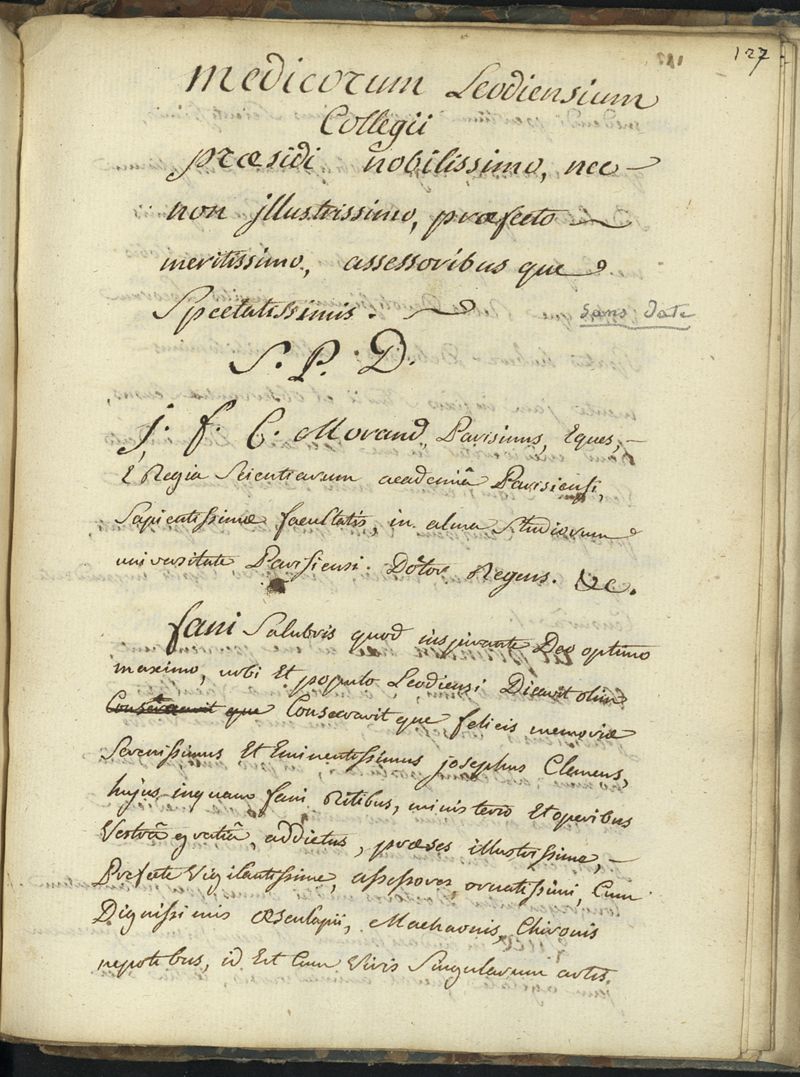 127
medicorum Leodiensium
Collegii
præsidi nobilissimo, nec
non jllustrissimo, præfecto
meritissimo, assessoribus que
Spectatissimis.
sans date
S. P. D.
J. f. C. Morand, Parisinus, Eques,
E Regia Scientiarum academiâ Parisiensi,
Sapientissimæ facultatis, in alma Studiorum
universitate Parisiensi. Doctor Regens. &c.
fani Salubris quod inspirante Deo optimo
maximo, urbi Et populo Leodiensi Dicavit olim
Consecravit que Consecravit que felicis memoriæ
Serenissimus Et Eminentissimus josephus Clemens,
hujus inquam fani Ritibus, ministerio Et operibus
Vestrâ gratiâ, addictus, præses illustrissime,
Prefecte Vigilantissime, assessores ornatissimi, Cum
Dignissimis æsculapii, Machaonis, Chironis
nepotibus, id Est Cum Viris Singularum artis,